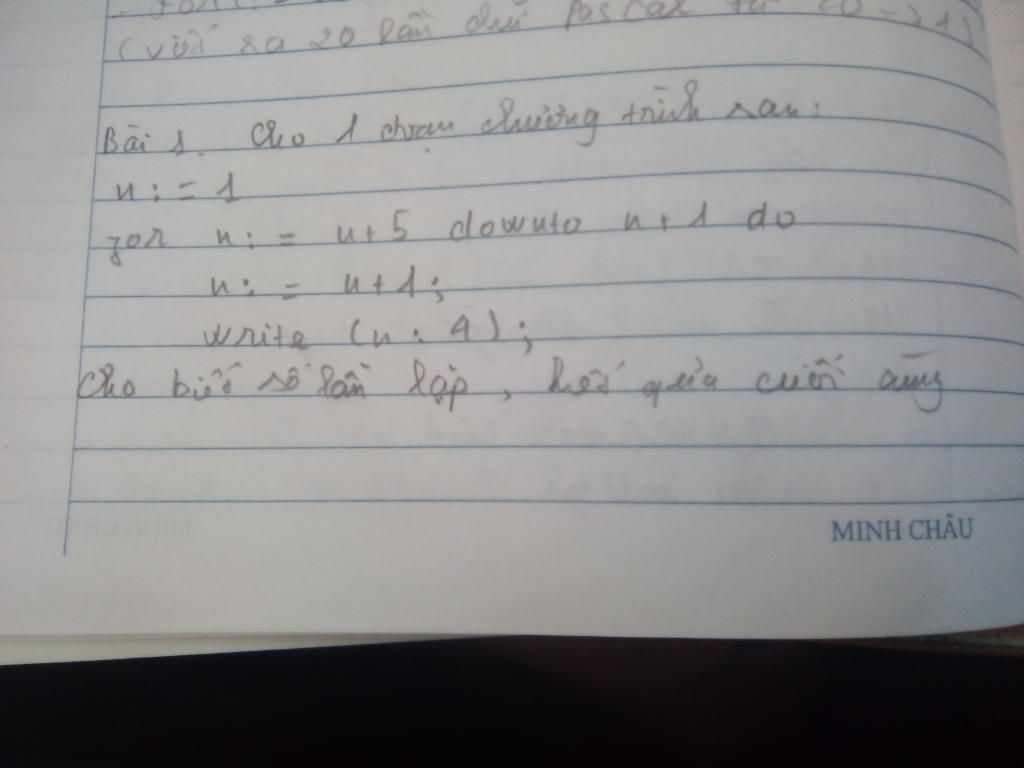 (viết ra 20 lần chữ Pascal từ 20 → 1)
Bài 1. Cho 1 đoạn chương trình sau:
n := 1
for n := n+5 downto n+1 do
n := n+1;
write (n : 4);
Cho biết số lần lặp, kết quả cuối cùng
MINH CHÂU